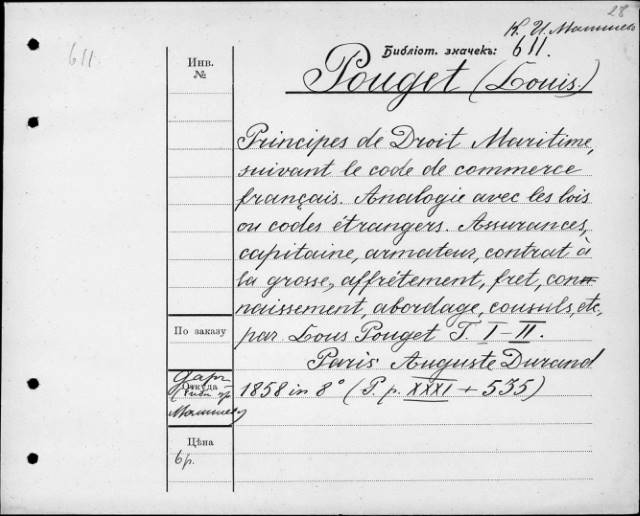 28
К. И.
611
Библіот. значекъ: 611.
Инв.
№
Pouget (Louis.)
Principes de Droit Maritime,
suivant le code de commerce
français. Analogie avec les lois
ou codes étrangers. Assurances,
capitaine, armateur, contrat à
la grosse, affrétement, fret, con-
naissement, abordage, consuls, etc,
По заказу
par Lous Pouget T. I–II.
Paris Auguste Durand
Откуда
1858 in 8° (T. p. XXXI + 535)
Цѣна
6 р.